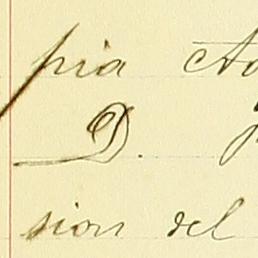 pia
D.
sion del